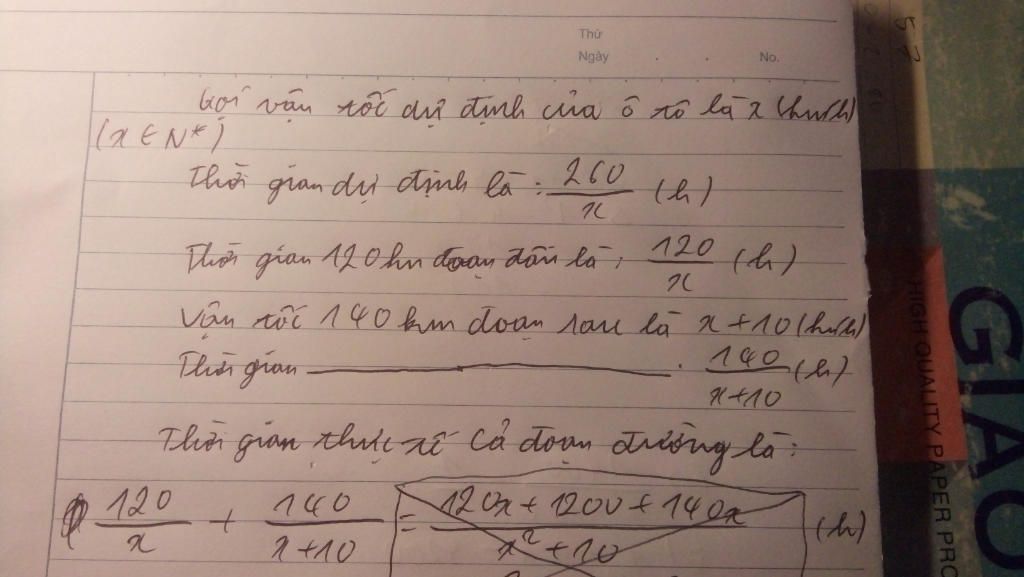 Thứ
Ngày . . No.
Gọi vận tốc dự định của ô tô là x (km/h)
(x ∈ N*)
Thời gian dự định là: 260/x (h)
Thời gian 120km đoạn đầu là: 120/x (h)
Vận tốc 140km đoạn sau là x+10 (km/h)
Thời gian ——— . 140/x+10 (h)
Thời gian thực tế cả đoạn đường là:
120/x + 140/x+10 = 120x + 1200 + 140x/x²+10 (h)
GIAO
HIGH QUALITY PAPER PRO
57